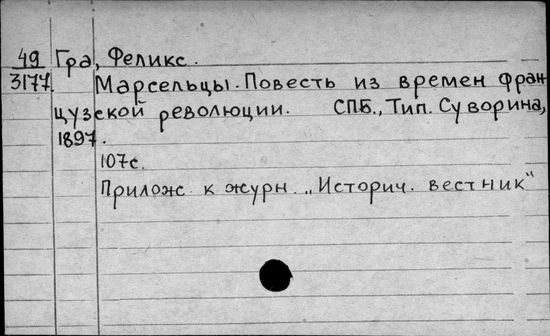 49 Гра, Феликс.
3177 Марсельцы. Повесть из времен фран
цузской революции. СПБ., Тип. Суворина,
1897.
107с.
Прилож. к журн. „Историч. вестник“